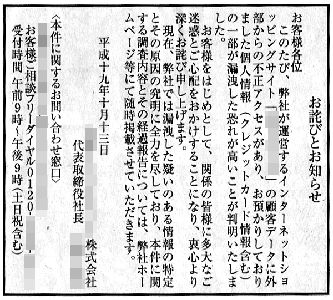 お詫びとお知らせ
お客様各位
このたび、弊社が運営するインターネットショ
ッピングサイト「　　　　」の顧客データに外
部からの不正アクセスがあり、お預かりしており
ました個人情報（クレジットカード情報含む）
の一部が漏洩した恐れが高いことが判明いたしま
した。
お客様をはじめとして、関係の皆様に多大なご
迷惑とご心配をおかけすることになり、衷心より
深くお詫び申し上げます。
現在、弊社では漏洩した疑いのある情報の特定
とその原因の究明に全力を尽しており、本件に関
する調査内容とその経過報告については、弊社ホー
ムページ等にて随時掲載させていただきます。
平成十九年十月十三日
株式会社
代表取締役社長
〈本件に関するお問い合わせ窓口〉
お客様ご相談フリーダイヤル0120-
受付時間 午前9時～午後9時(土日祝含む)